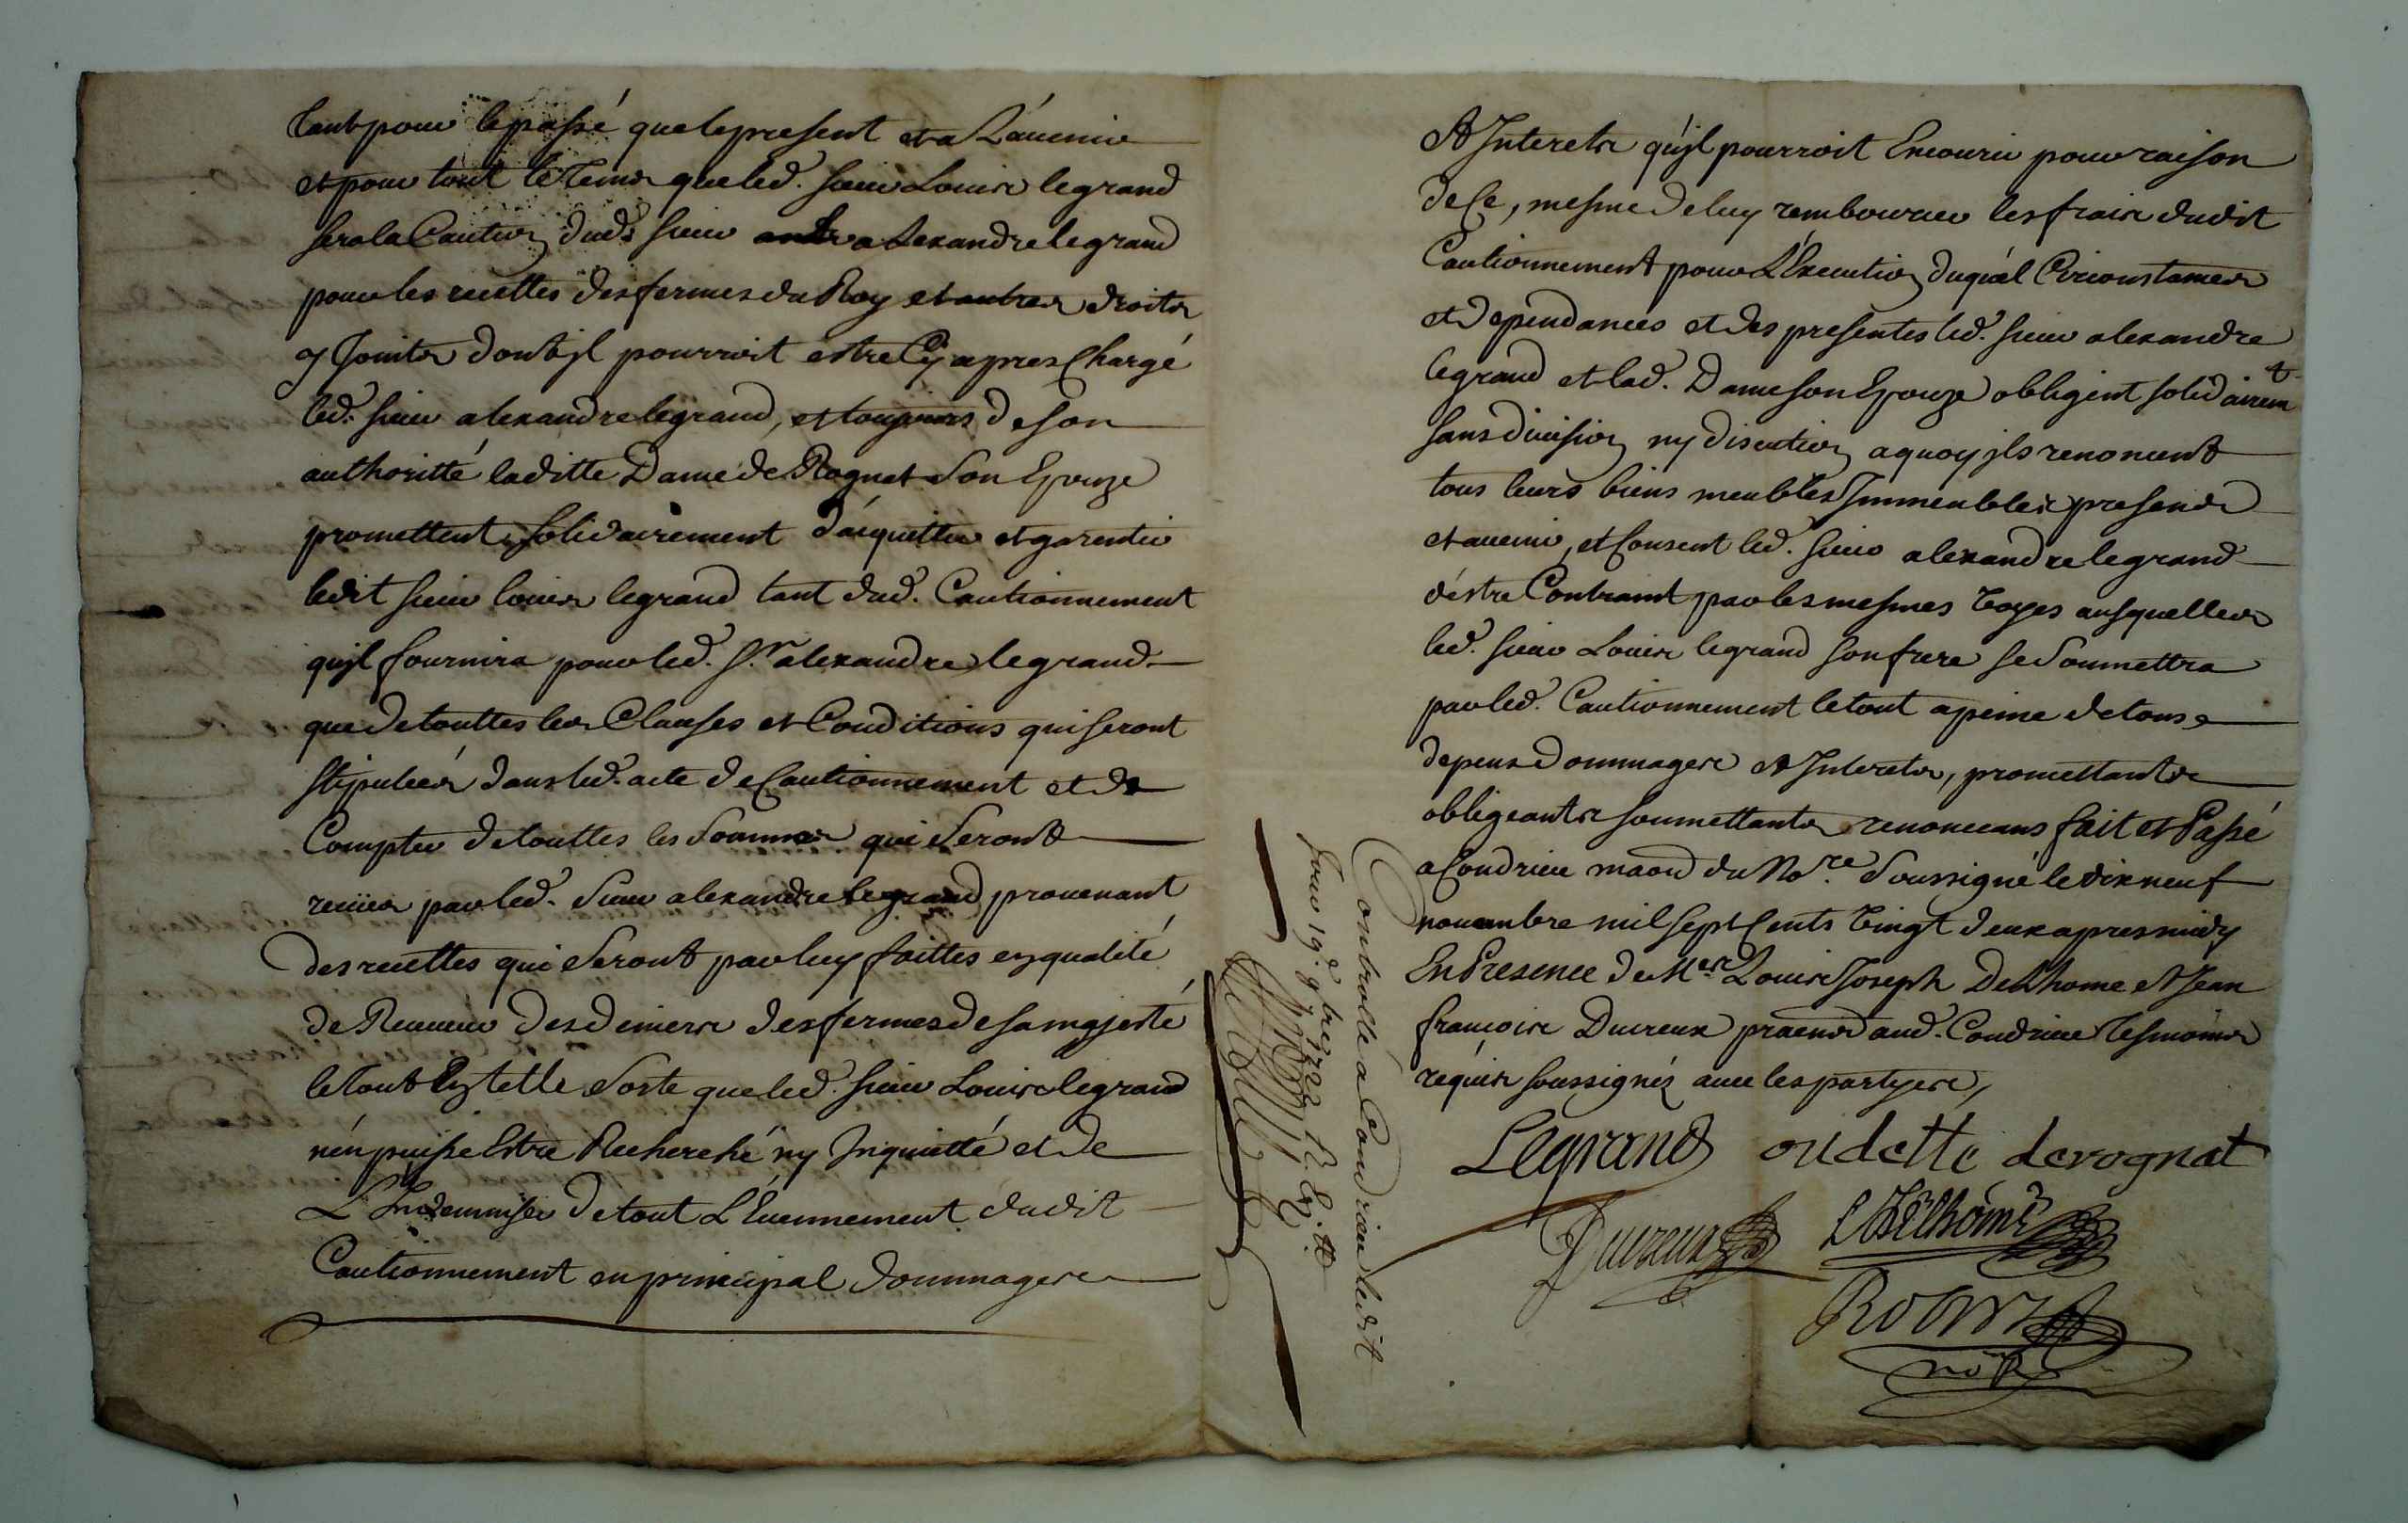 tant pour le passé que le present et a L'auenir
et pour tout le Tems que led. sieur Louis legrand
sera la Caution dud. sieur alexandre legrand
pour les recettes des fermes du Roy et autres droits
y Joints dont jl pourroit estre Cy apres Chargé
led. sieur alexandre legrand, et toujours de son
authoritté laditte Dame de Rognat Son Epouze
promettent solidairement d'acquitter et garentir
ledit sieur louis legrand tant dud. Cautionnement
qu'jl fournira pour led. S.r alexandre legrand
que de touttes les Clauses et Conditions qui seront
stipulées dans led. acte de Cautionnement et de
Compter de touttes les Sommes qui Seront
reçües par led. Sieur alexandre legrand prouenant
des recettes qui Seront par luy faittes en qualité
de Receueur des deniers des fermes de sa majesté
le Tout En telle Sorte que led. sieur Louis legrand
n'en puisse Estre Recherché ny Inquietté et de
L'Indemniser de tout L'Euennement dudit
Cautionnement en principal dommages
Et Interets qu'jl pourroit Encourir pour raison
de Ce, mesme de luy rembourcer les frais dudit
Cautionnement pour L'Execution duquel Circonstances
et dependances et des presentes led. sieur alexandre
legrand et lad. Dame son Epouze obligent solidairemt
sans diuision ny discution a quoy jls renoncent
tous leurs biens meubles Immeubles presends
et auenir, et Consent led. sieur alexandre legrand
d'estre Contraint par les mesmes Voyes ausquelles
led. sieur Louis legrand son frere se Soumettra
par led. Cautionnement le tout a peine de tous
depens Dommages Et Interets, promettants
obligeants soumettants renonceans fait et Passé
a Condrieu maon du No.re Soussigné le dix neuf
nouembre mil sept Cents Vingt deux apres midy
En Presence de Mes Louis Joseph Delhome Et Jean
françois Ducreux praens aud. Condrieu Tesmoins
réquis soussignéz auec les partyes,
Legrand oudette derognat
Ducreux L J Delhome
Robin
no.re
Controllé a Condrieu ledit
Jour 19.e 9bre 1722 R.